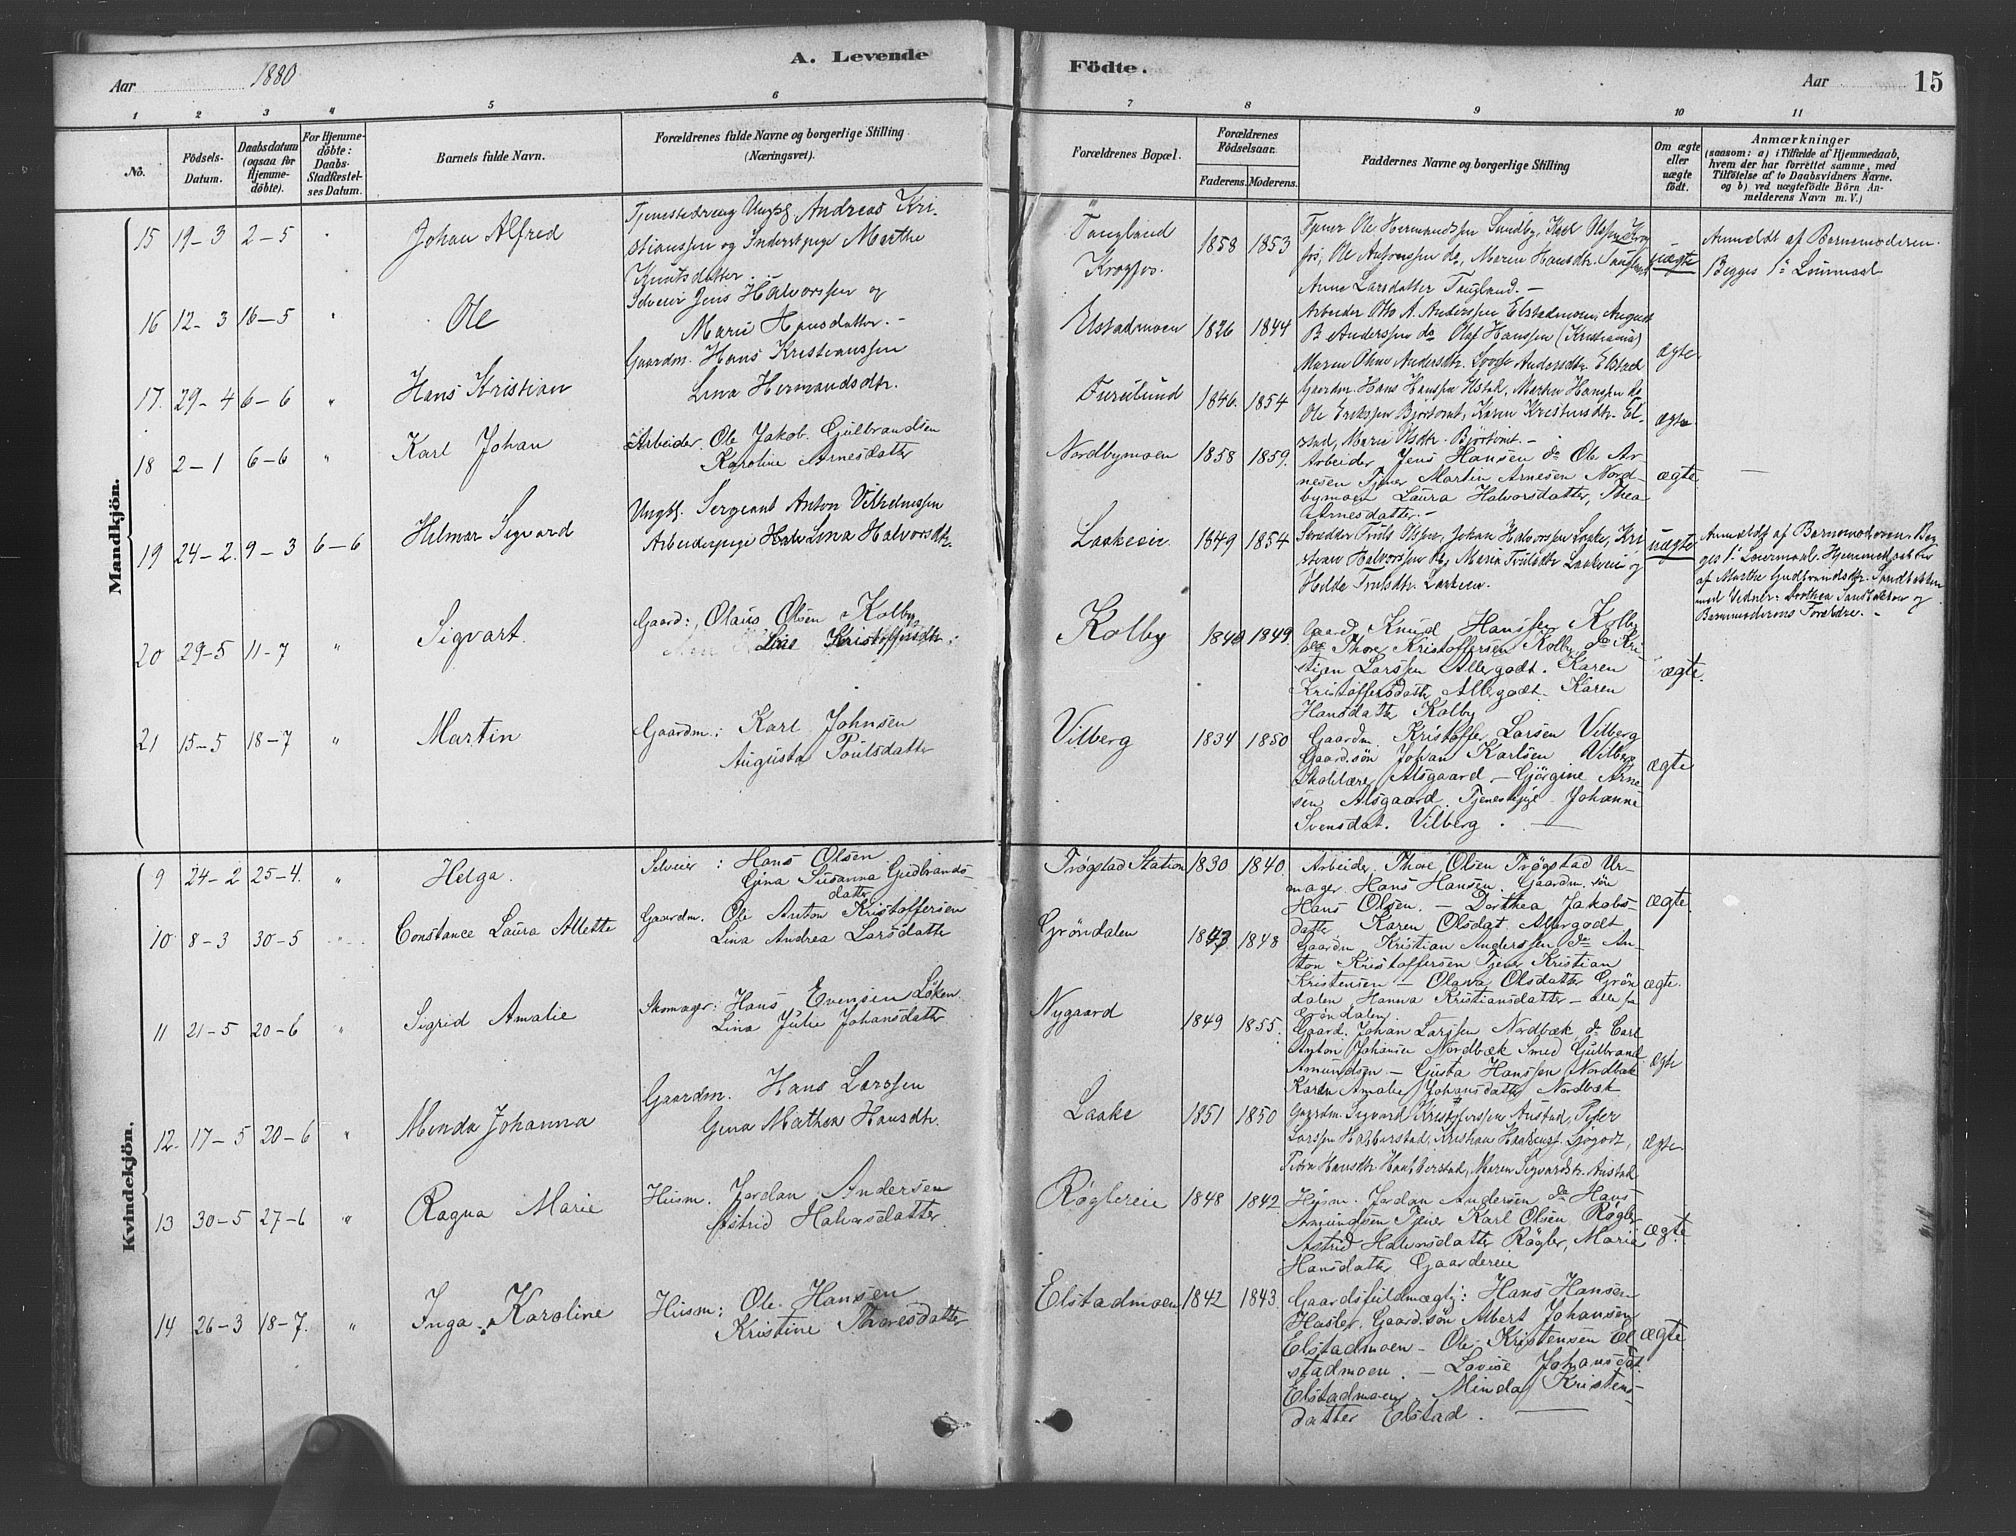 A. Levende
Födte.
Aar 1880
Aar
15
1 2 3 4 5 6 7 8 9 10 11
No.
Födsels-Datum.
Daabsdatum (ogsaa for Hjemmedöbte).
For Hjemmedöbte: Daabs-Stadfæstelses Datum.
Barnets fulde Navn.
Forældrenes fulde Navne og borgerlige Stilling (Næringsvei).
Forældrenes Bopæl.
Forældrenes Födselsaar.
Faderens. Moderens.
Faddernes Navne og borgerlige Stilling
Om ægte eller uægte födt.
Anmærkninger
(saasom: a) i Tilfælde af Hjemmedaab,
hvem der har forrettet samme, med
Tilföielse af to Daabsvidners Navne.
og b) ved uægtefödte Börn Anmelderens Navn m. V.)
Mandkjön.
15 19-3 2-5 " Johan Alfred
Tjenestedreng Ungk. Andreas Kri-
stianssen og Inderstpige Marthe
Knutsdatter.
Taugland
Kragfos.
1858 1853
Tjener Ole Hermandssen Sundby, Karl Olssen Krag-
fos, Ole Antonssen do, Maren Hansdtr.
Anna Larsdatter Taugland. -
uægte
Anmeldt af Barnemoderen.
Begges 1ste Leiermaal
16 12-3 16-5 " Ole
Selveier Jens Halvorssen og
Marie Hansdatter. -
Elstadmoen 1826 1844
Arbeider Otto A. Anderssen Elstadmoen, August
B. Anderssen do Olaf Hanssen (Kristiania)
Maren Oline Andersdtr. Lovise Andersdtr. Elstad
ægte
17. 29-4 6-6 " Hans Kristian
Gaardm. Hans Kristianssen
Lina Hermandsdtr.
Furulund 1846. 1854
Gaardm. Hans Hanssen Elstad, Martin Hanssen do
Ole Erikssen Bjørtomt, Karen Kristiansdtr. El-
stad, Marie Olsdtr. Bjørtomt. -
ægte
18 2-1 6-6 " Karl Johan
Arbeider Ole Jakob Gulbrandsen
Karoline Arnesdatter
Nordbymoen 1858 1859.
Arbeider Jens Hansen do Ole Ar-
nesen Tjener Martin Arnesen Nord-
bymoen Laura Halvorsdatter, Thea
Arnesdatter. -
ægte
19 24-2. 9-3 6-6 Hilmar Sigvard
Ungk. Sergeant Anton Vilhelmssen
Arbeiderpige Lina Halvorsdtr.
Laakeeie. 1849 1854
Skrædder Truls Olssen, Johan Halvorssen Laake, Kri-
stian Halvorssen do, Maria Trulsdtr. Laakeeie og
Helde Trulsdtr. Laakeeie.
uægte
Anmeldt af Barnemoderen. Beg-
ges 1ste Leiermaal. Hjemmedøbt
af Marthe Gudbrandsdtr. Sandbakken
med Vidner: Dorthea Sandbakken og
Barnemoderens Forældre. -
20 29-5 11-7 " Sigvart.
Gaard: Olaus Olsen Kolby
Line Kristoffersdtr.
Kolby 1840 1849
Gaard. Knud Hanssen Kolby
Thore Kristoffersen Kolby do Kri-
stjen Larssen Allergodt. Karen
Kristoffersdatter Allergodt. Karen
Hansdatter Kolby
ægte.
21 15-5 18-7 " Martin
Gaardm: Karl Johnsen
Augusta Poulsdatter
Vilberg 1834 1850
Gaardm. Kristoffer Larsen Vilberg
Gaards.søn Johan Karlsen Vilberg
Skolelærer Alsgaard. - Gjørgine Arne-
sen Alsgaard. Tjenestepige Johanne
Svensdat. Vilberg.
ægte
Kvindekjön.
9 24-2 25-4. " Helga.
Selveier: Hans Olsen
Gina Susanna Gudbrands-
datter
Trøgstad Station 1830 1840.
Arbeider Thore Olsen Trøgstad Ur-
mager. Hans Hansen. Gaardm. søn
Hans Olsen. - Dorthea Jakobs-
datter Karen Olsdat. Allergodt
ægte.
10 8-3 30-5 " Constance Laura Allette
Gaardm. Ole Anton Kristoffersen
Lina Andrea Larsdatter
Grøndalen 1843 1848
Gaardm. Kristian Anderssen do An-
ton Kristoffersen Tjener Kristian
Kristensen - Olava Olsdatter Grøn-
dalen Hanna Kristiansdatter
Grøndalen.
ægte.
11 21-5 20-6 " Sigrid Amalie
Skomager: Hans Evensen Løken
Lina Julie Johansdatter
Nygaard 1849 1855.
Gaard. Johan Larssen Nordbæk, do Carl
Anton Johansen Nordbæk Smed Gulbrand
Amundsen - Gusta Hanssen Nordbæk
Karen Amalie Johansdatter Nordbæk
ægte
12. 17-5 20-6 " Menda Johanna
Gaardm. Hans Larssen
Gina Mathea Hansdtr.
Laake 1851 1850
Gaardm. Sigvard Kristofferssen Austad, Peder
Larssen Habberstad, Kristian Haakens.
Hansdtr. Habberstad, Maren Sigvardsdtr. Austad.
ægte
13 30-5 27-6 " Ragna Marie
Husm. Jordan Andersen
Astrid Halvorsdatter.
Røglereie 1848 1842.
Husm. Jordan Andersen do Hans
Amundsen Tjener Karl Olsen Røgler
Astrid Halvorsdatter Røgler, Maria
Hansdatter Gaardereie
ægte.
14 26-3 18-7. " Inga Karoline
Husm: Ole Hansen
Kristine Thoresdatter
Elstadmoen 1842 1843.
Gaardsfuldmægtig: Hans Hansen
Hasler, Gaard.søn Albert Johansen
Elstadmoen - Ole Kristensen El-
stadmoen. - Lovise Johansdat.
Elstadmoen, Minda Kristens-
datter Elstad.
ægte